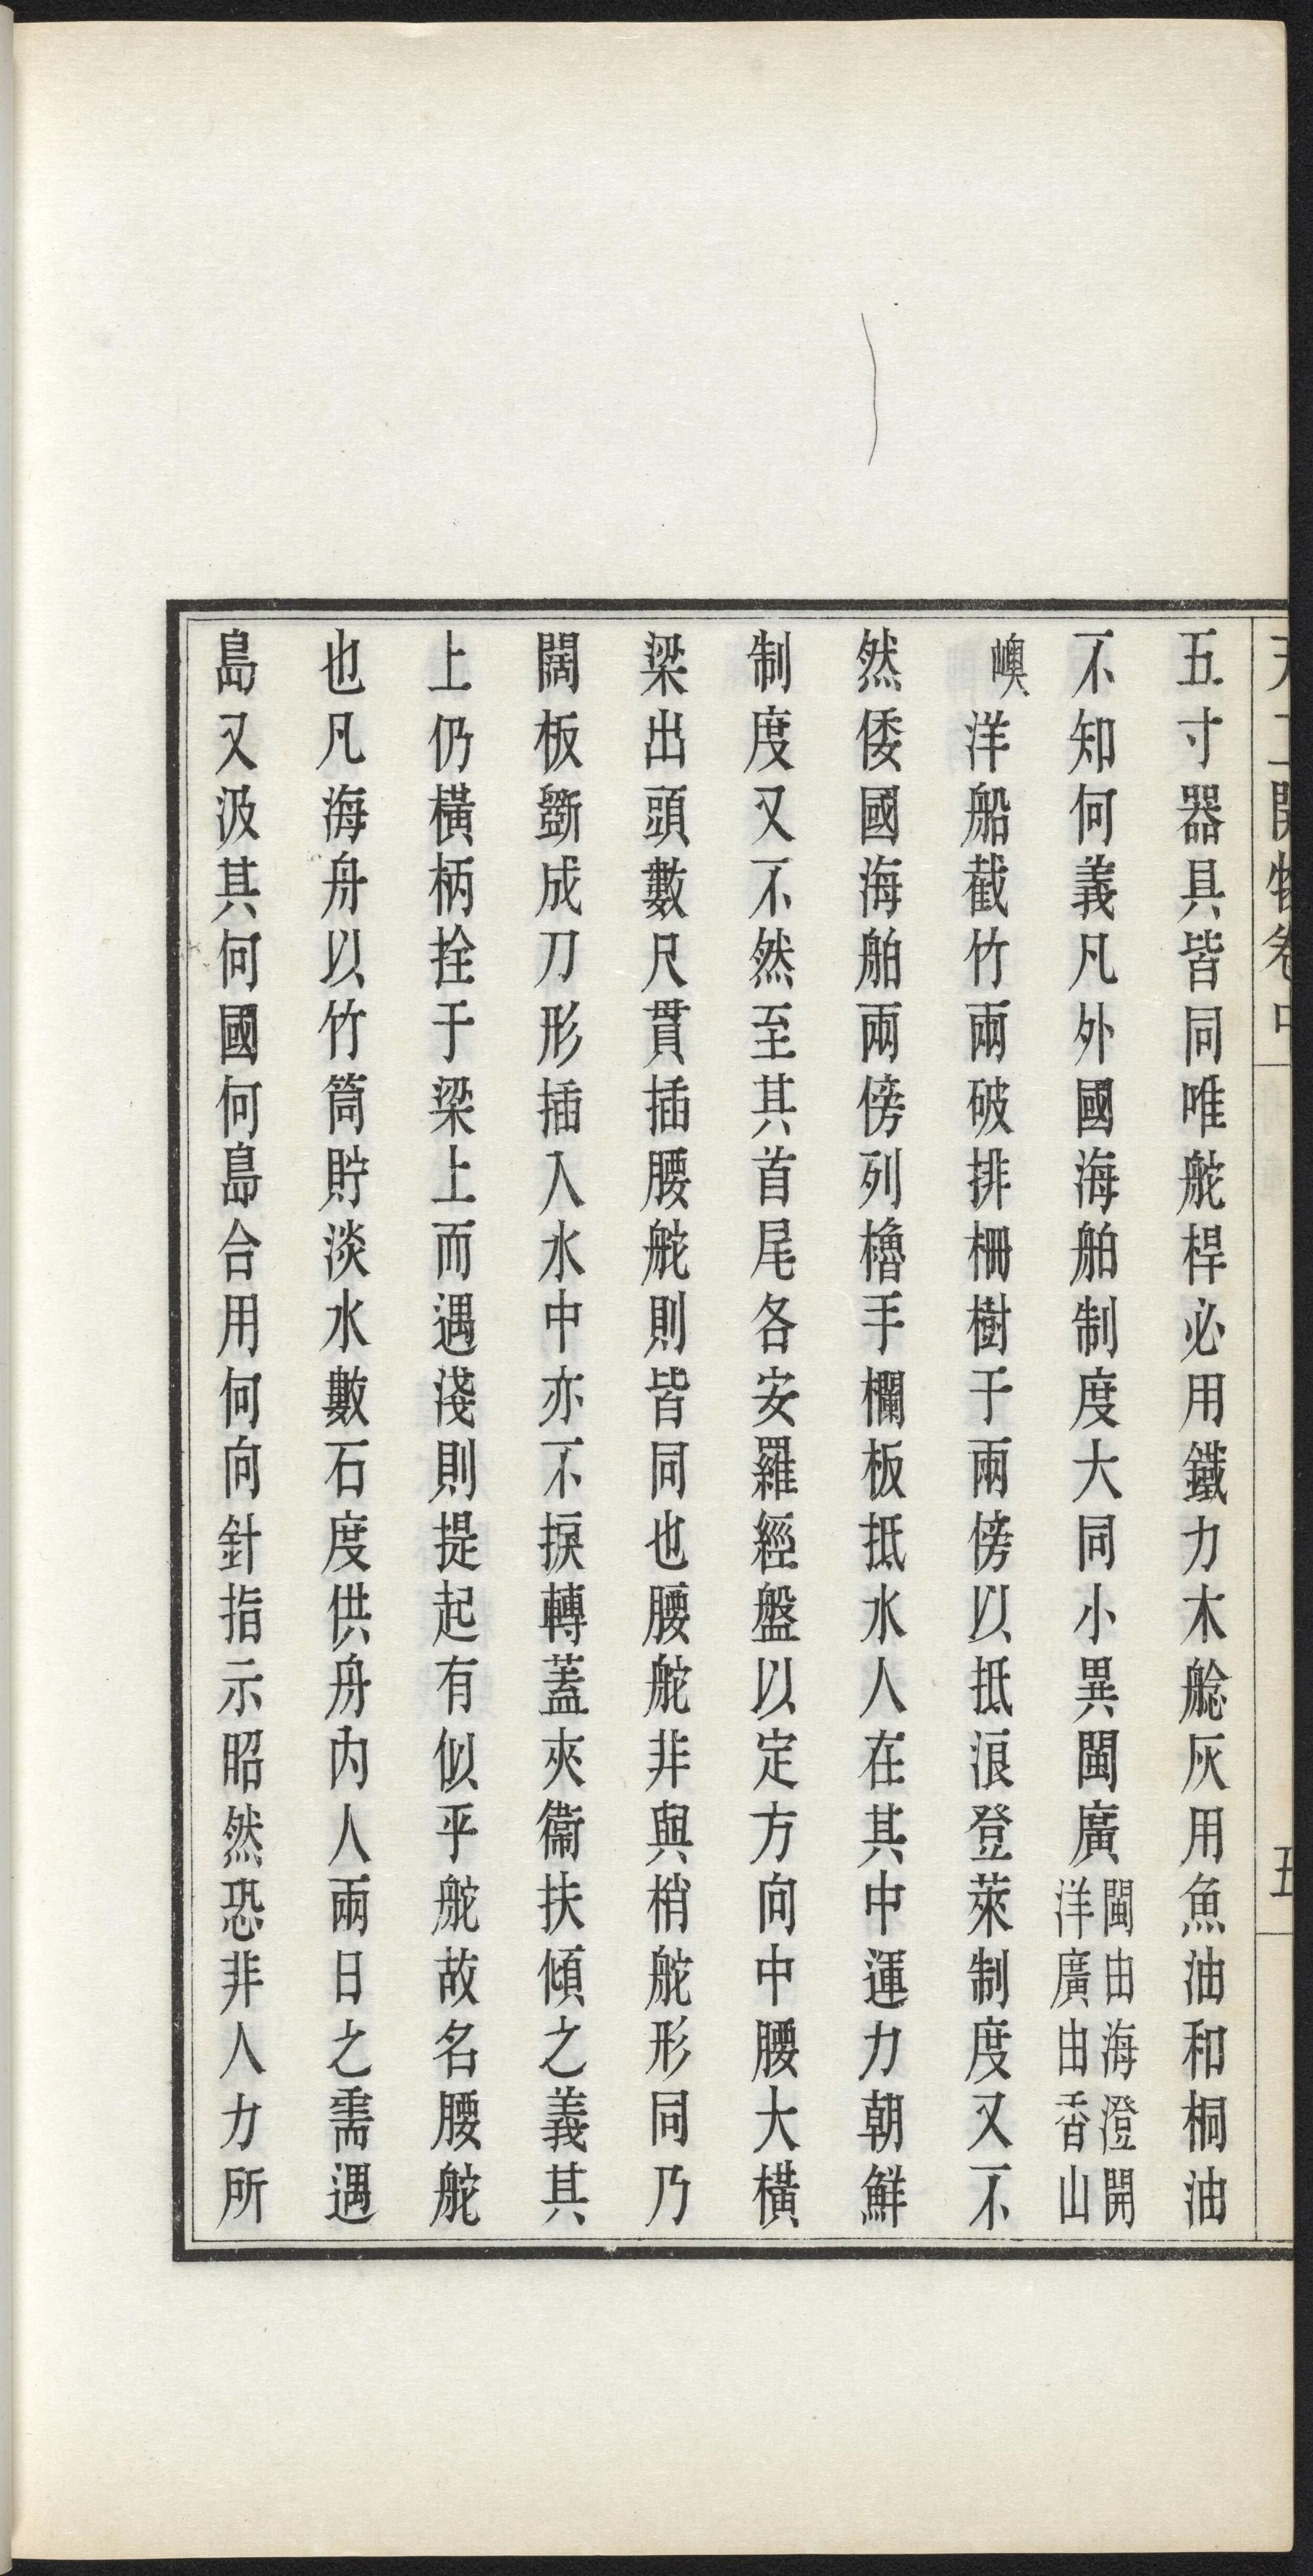 天工開物卷中
五
五寸器具皆同唯舵桿必用鐵力木艌灰用魚油和桐油
不知何義凡外國海舶制度大同小異閩廣閩由海澄開洋廣由香山
嶴洋船截竹兩破排柵樹于兩傍以抵浪登萊制度又不
然倭國海舶兩傍列櫓手欄板抵水人在其中運力朝鮮
制度又不然至其首尾各安羅經盤以定方向中腰大橫
梁出頭數尺貫插腰舵則皆同也腰舵非與梢舵形同乃
闊板斲成刀形插入水中亦不捩轉蓋夾衞扶傾之義其
上仍橫柄拴于梁上而遇淺則提起有似乎舵故名腰舵
也凡海舟以竹筒貯淡水數石度供舟內人兩日之需遇
島又汲其何國何島合用何向針指示昭然恐非人力所